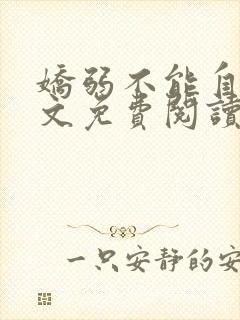 嬌弱不能自
文免費閱讀
一只安靜的安